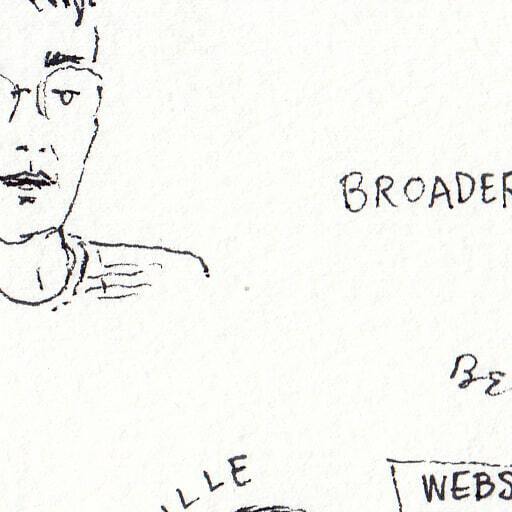 BROADER
BE
ILLE
WEBS